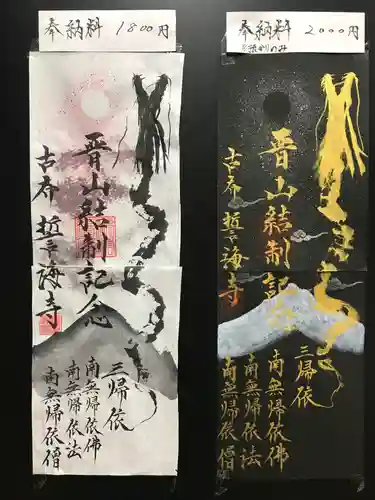 奉納料 1800円
晋山結制記念
古斉 誓海寺
三帰依
南無帰依佛
南無帰依法
南無帰依僧
奉納料 2000円
晋山結制記念
古斉 誓海寺
三帰依
南無帰依佛
南無帰依法
南無帰依僧